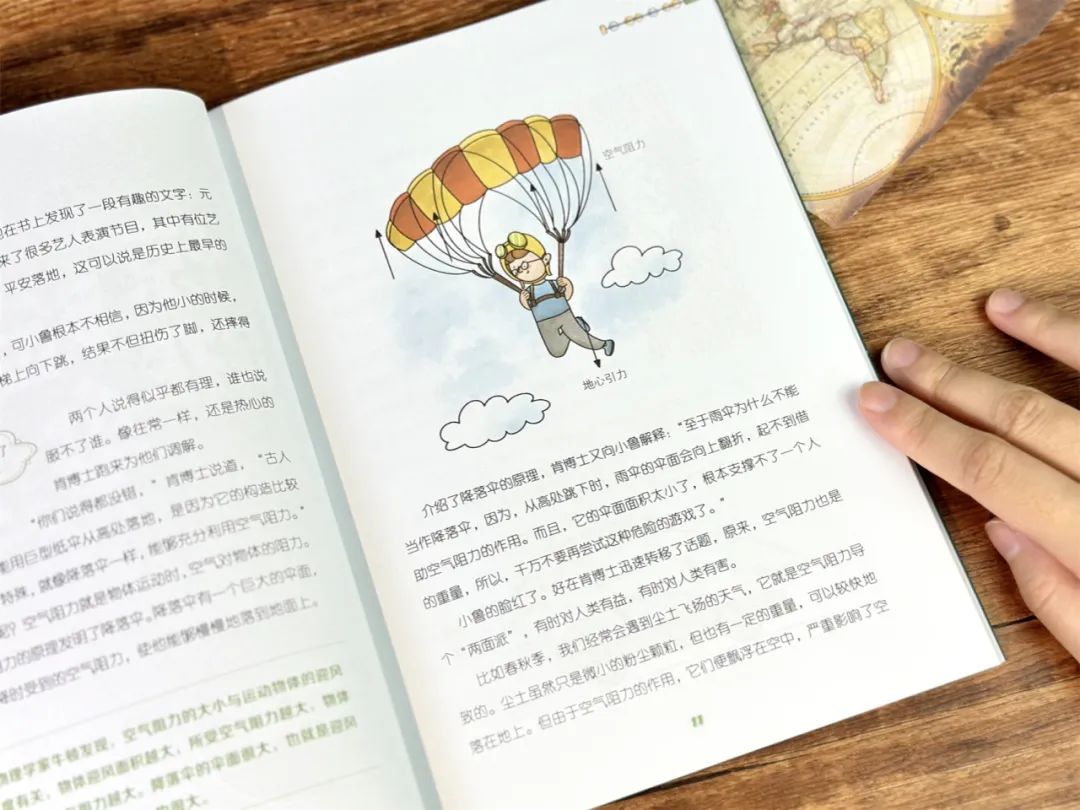 在书上发现了一段有趣的文字：元
来了很多艺人表演节目，其中有位艺
平安落地，这可以说是历史上最早的
，可小鲁根本不相信，因为他小的时候，
梯上向下跳，结果不但扭伤了脚，还摔得
两个人说得似乎都有理，谁也说
服不了谁。像往常一样，还是热心的
肯博士跑来为他们调解。
“你们说得都没错，”肯博士说道，“古人
能用巨型纸伞从高处落地，是因为它的构造比较
特殊，就像降落伞一样，能够充分利用空气阻力。”
？空气阻力就是物体运动时，空气对物体的阻力。
力的原理发明了降落伞。降落伞有一个巨大的伞面，
降时受到的空气阻力，使他能够慢慢地落到地面上。
物理学家牛顿发现，空气阻力的大小与运动物体的迎风
度有关，物体迎风面积越大，所受空气阻力越大，物体
阻力越大。降落伞的伞面很大，也就是迎风
很大。
空气阻力
地心引力
介绍了降落伞的原理，肯博士又向小鲁解释：“至于雨伞为什么不能
当作降落伞，因为，从高处跳下时，雨伞的伞面会向上翻折，起不到借
助空气阻力的作用。而且，它的伞面面积太小了，根本支撑不了一个人
的重量，所以，千万不要再尝试这种危险的游戏了。”
小鲁的脸红了。好在肯博士迅速转移了话题，原来，空气阻力也是
个“两面派”，有时对人类有益，有时对人类有害。
比如春秋季，我们经常会遇到尘土飞扬的天气，它就是空气阻力导
致的。尘土虽然只是微小的粉尘颗粒，但也有一定的重量，可以较快地
落在地上。但由于空气阻力的作用，它们便飘浮在空中，严重影响了空
11